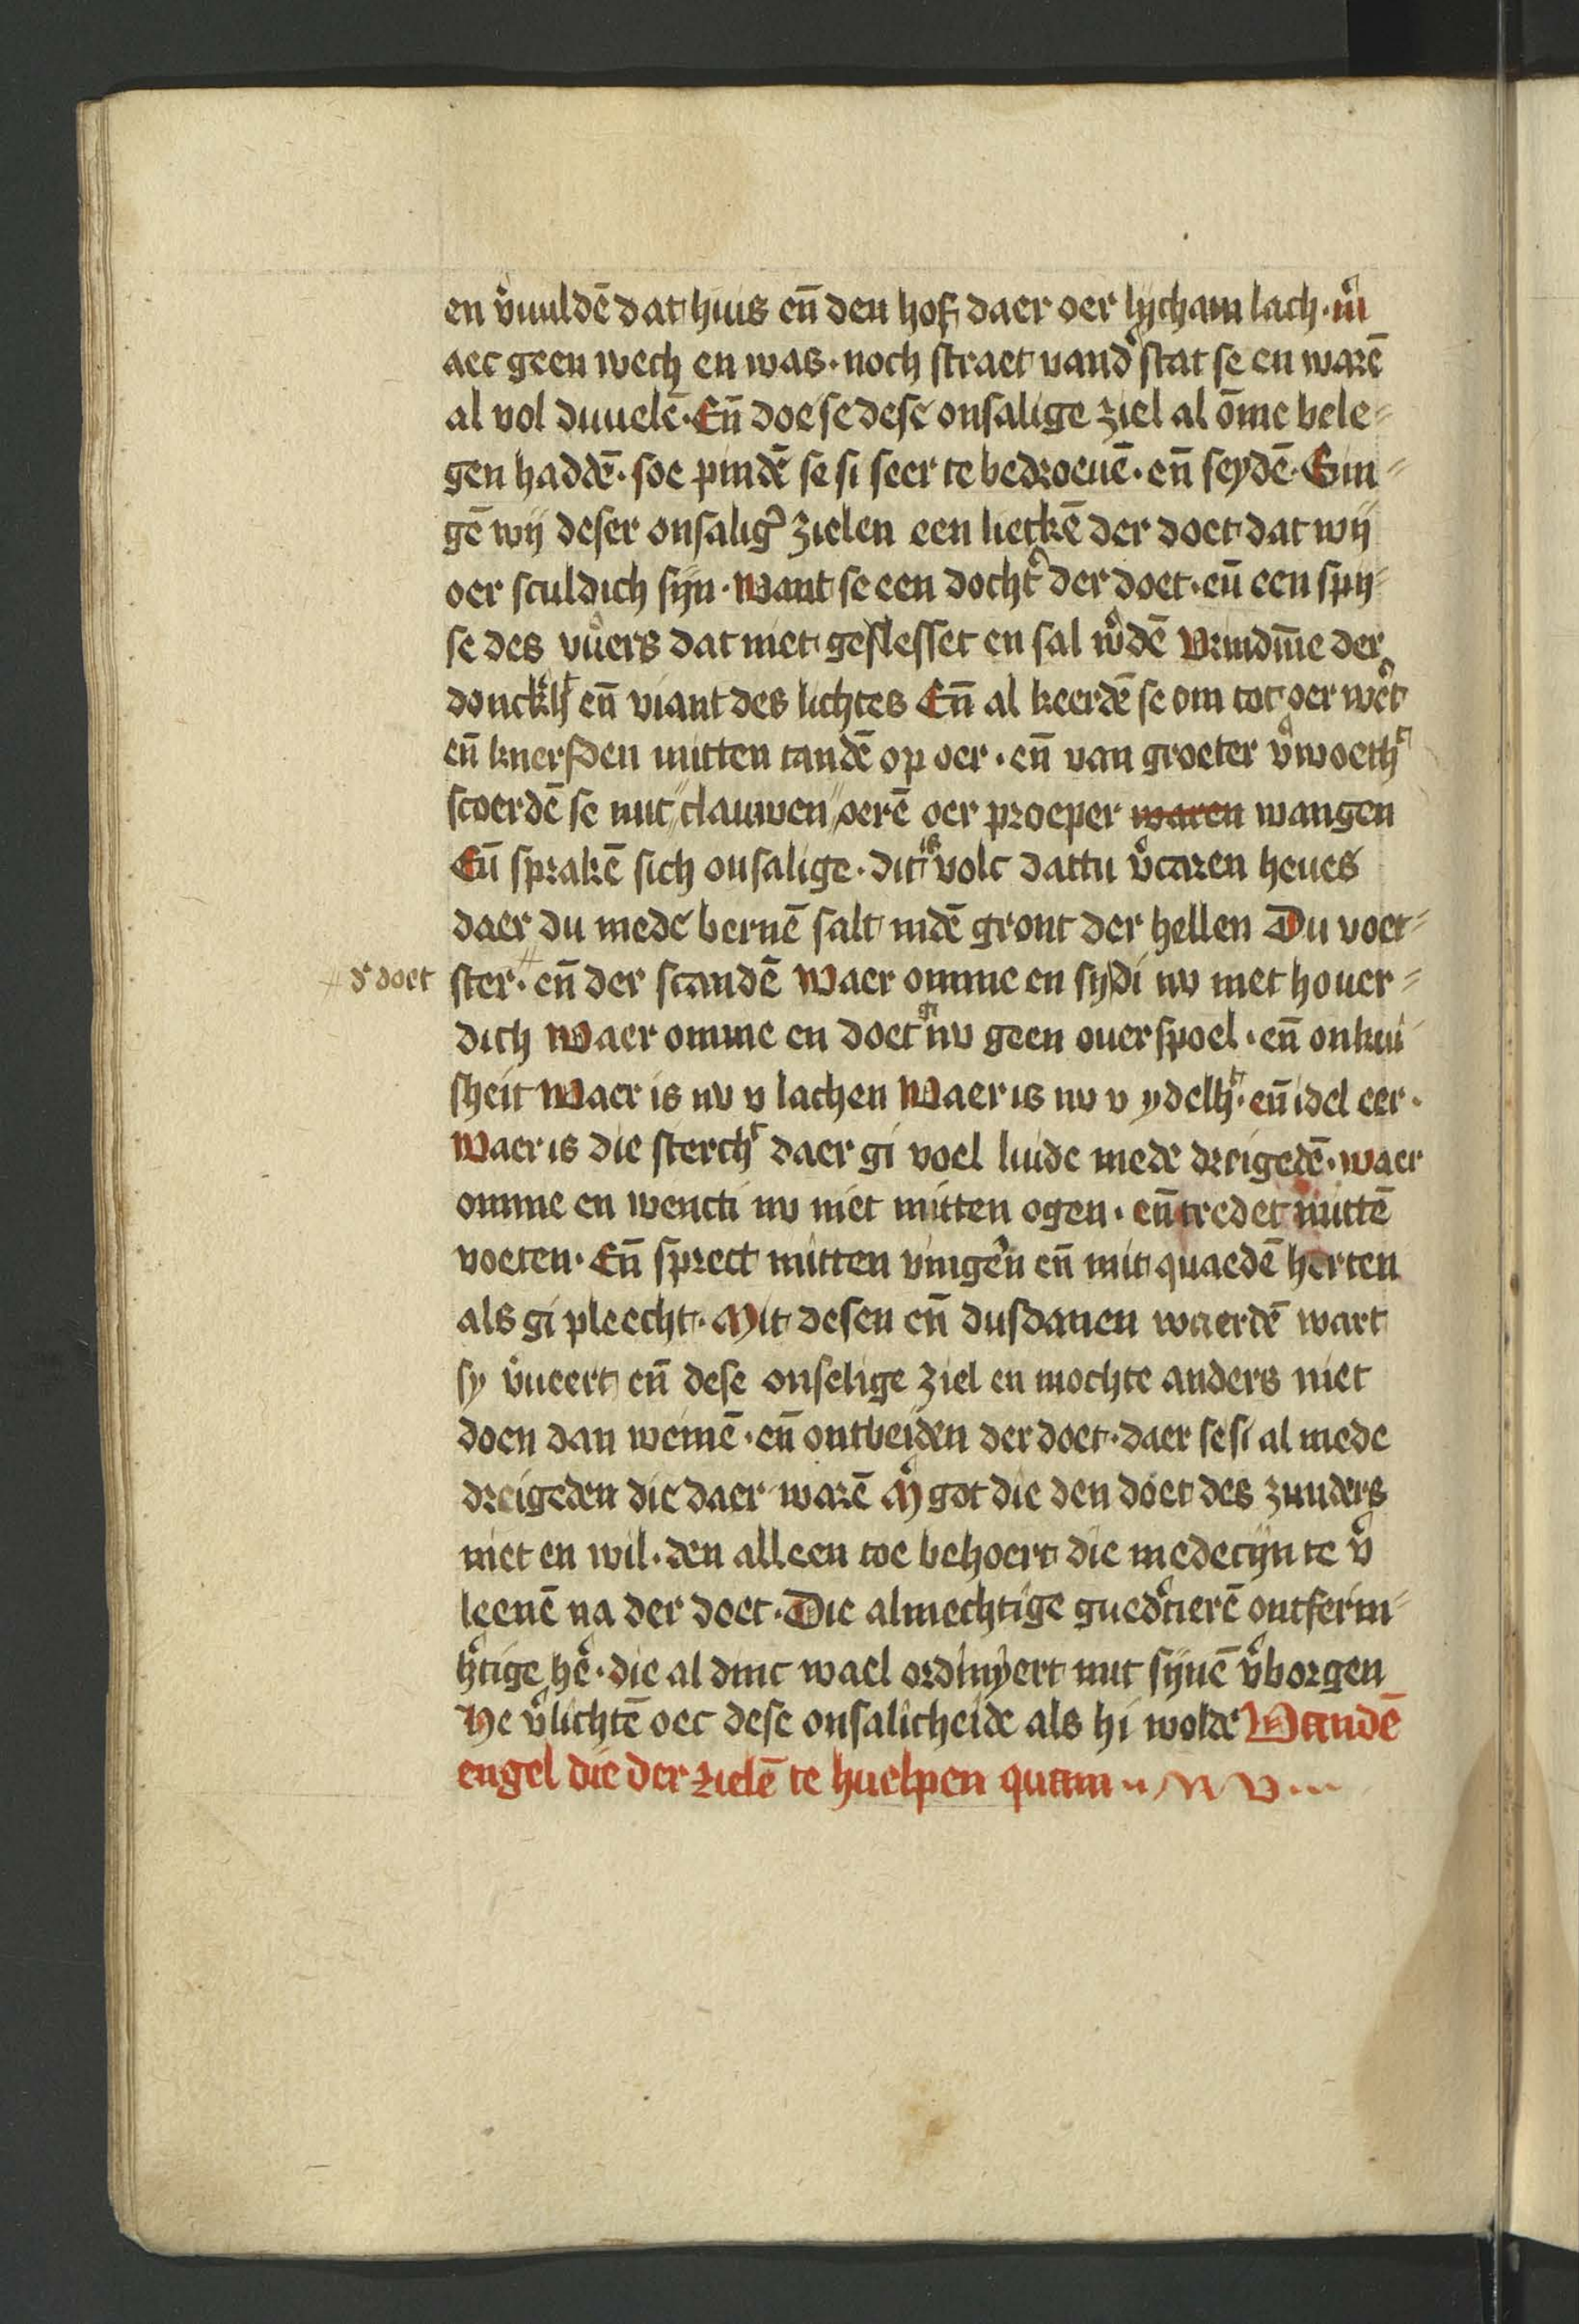 en v̉vuldē dat huus eñ den hof daer oer lycham lach · m̉
aec geen wech en was · noch straet vand̉ stat se en warē
al vol duuelē · Eñ doe se dese onsalige ziel al ōme bele=
gen haddē · soe pindē se si seer te bedroeuē · eñ seydē · Sin=
gē wij deser onsalig̉ zielen een lietkē der doet dat wij
oer sculdich sijn · want se een docht̉ der doet · eñ een spy=
se des vuers dat niet geslesset en sal w̉dē vrindīne der
donck̉hᵗ eñ viant des lichtes Eñ al keerdē se om tot oer wēt
eñ knersden mitten tandē op oer · eñ van groeter v̉woethᵗ
scoerdē se mit clauwen oerē oer proeper waren wangen
Eñ sprakē sich onsalige · dit is volc dattu v̉caren heues
daer du mede bernē salt indē gront der hellen Du voet=
# d̉ doet
ster · # eñ der scandē waer omme en sydi nv niet houer=
dich waer omme en doet gi nv geen ouerspoel · eñ onkui
sheit waer is nv v lachen waer is nv v ydelhᵗ · eñ idel eer ·
waer is die sterchᵗ daer gi voel luide mede dreigedē · waer
omme en wencti nv niet mitten ogen · eñ tredet mittē
voeten · Eñ sprect mitten vingen̉ eñ mit quaedē herten
als gi pleecht · Mit desen eñ dusdanen waerdē wart
sy v̉ueert eñ dese onselige ziel en mochte anders niet
doen dan weinē · eñ ontbeiden der doet · daer se si al mede
dreigeden die daer warē M̉ got die den doet des zunders
niet en wil · den alleen toe behoert die medecijn te v̉
leenē na der doet · Die almechtige gued̉tierē ontferm=
h̉tige he̅ · die al dinc wael ordinyert mit sijnē v̉borgen
He v̉lichtē oec dese onsalicheide als hi wolde Vandē
engel die der zielē te huelpen quam